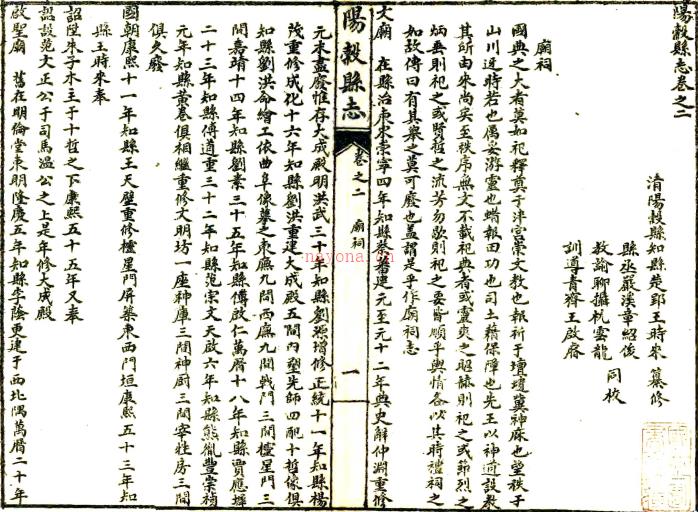 陽穀縣志卷之二
清陽穀縣知縣楚郢王時來纂修
縣丞嚴溪章紹俊
教諭聊攝杭雲龍 同校
訓導青齊王啟睿
廟祠
國典之大者莫如祀釋奠于泮宮崇文教也報祈于壇壝冀神庥也望秩于
山川逆時若也偶妥游靈也蜡報田功也司土藉保障也先王以神道設教
其所由來尚矣至秩序無文不載祀典者或靈爽之昭赫則祀之或節烈之
炳垂則祀之或賢哲之流芳勿歇則祀之要皆順乎輿情各以其時禮祠之
如故傳曰有其舉之莫可廢也蓋謂是乎作廟祠志
文廟 在縣治東宋崇寧四年知縣蔡蕃建元至元十二年典史解仲淵重修
陽穀縣志
卷之二 廟祠
一
元末盡廢惟存大成殿明洪武三十年知縣劉源增修正統十一年知縣楊
茂重修成化十六年知縣劉洪重建大成殿五間內塑先師四配十哲像俱
知縣劉洪命繪工依曲阜像摹之東廡九間西廡九間戟門三間櫺星門三
間嘉靖十四年知縣劉素三十五年知縣傅啟仁萬曆十八年知縣賈應墀
二十三年知縣傅道重三十二年知縣范宗文天啟六年知縣熊胤豐崇禎
元年知縣黃卷俱相繼重修文明坊一座神庫三間神廚三間宰牲房三間
俱久廢
國朝康熙十一年知縣王天壁重修櫺星門屏築東西門垣康熙五十三年知
縣王時來奉
詔陞朱子木主于十哲之下康熙五十五年又奉
詔設范文正公于司馬溫公之上是年修大成殿
啟聖廟 舊在明倫堂東明隆慶五年知縣李蔭更建于西北隅萬曆二十年
nayona.cn